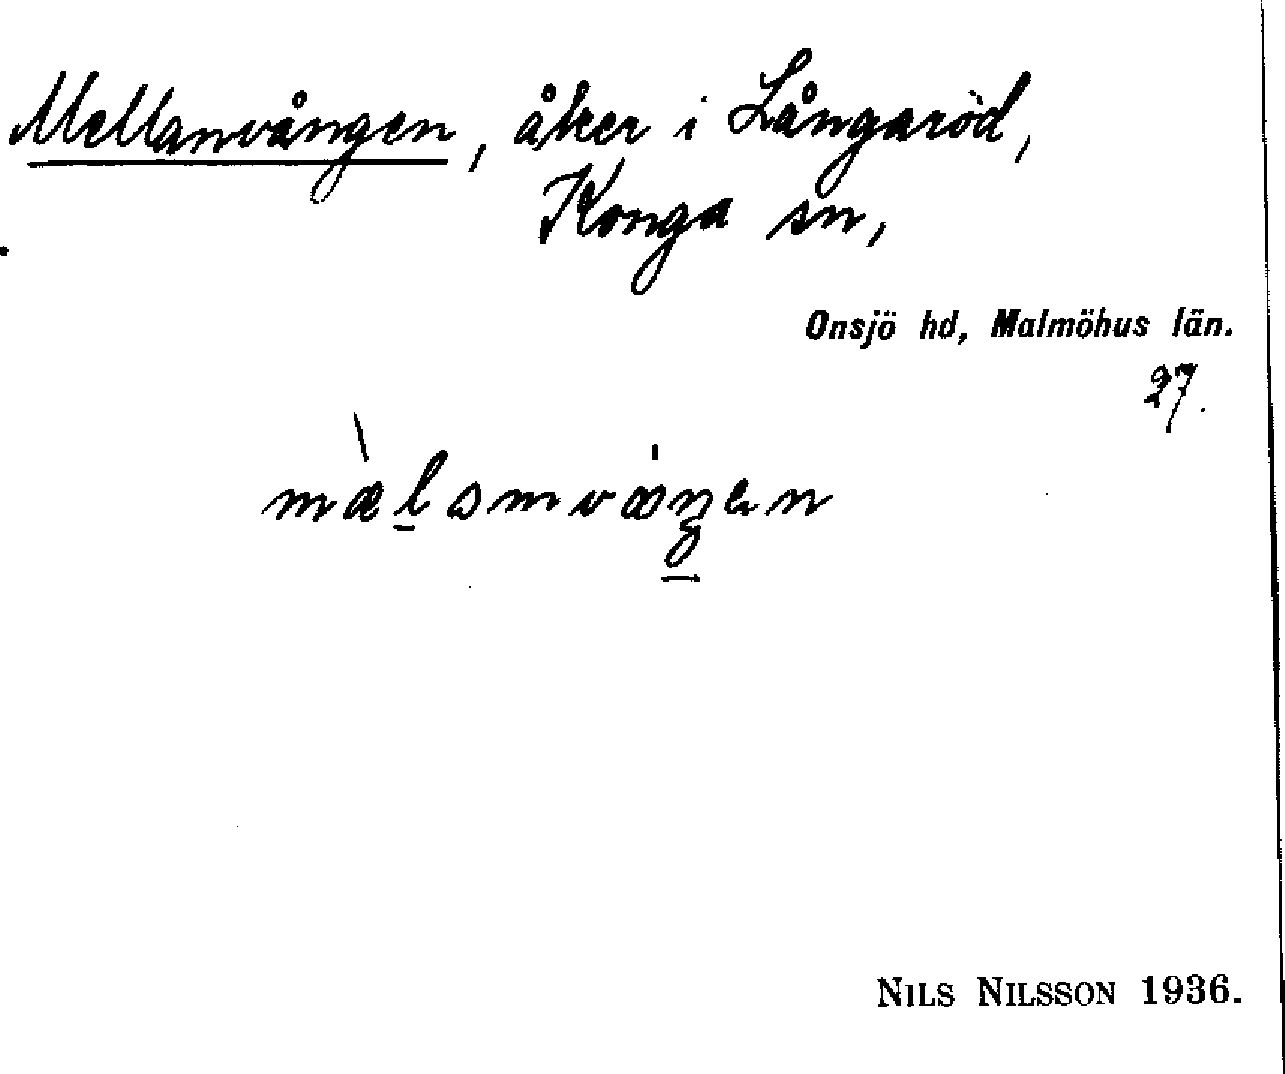 Mellanvången, åker i Långaröd,
Konga sn,
Onsjö hd, Malmöhus län.
27.
NILS NILSSON 1936.